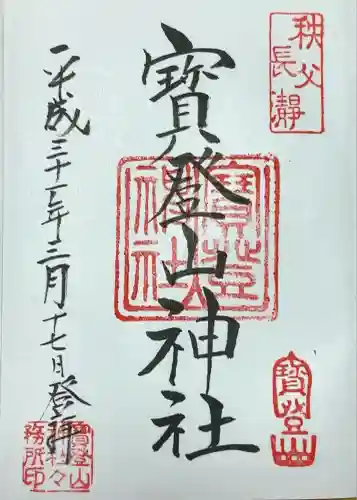 秩父
長瀞
寳登山神社
寳登山
神社
寳登山
平成三十一年三月十七日登拝
寳登山
神社々
務所印